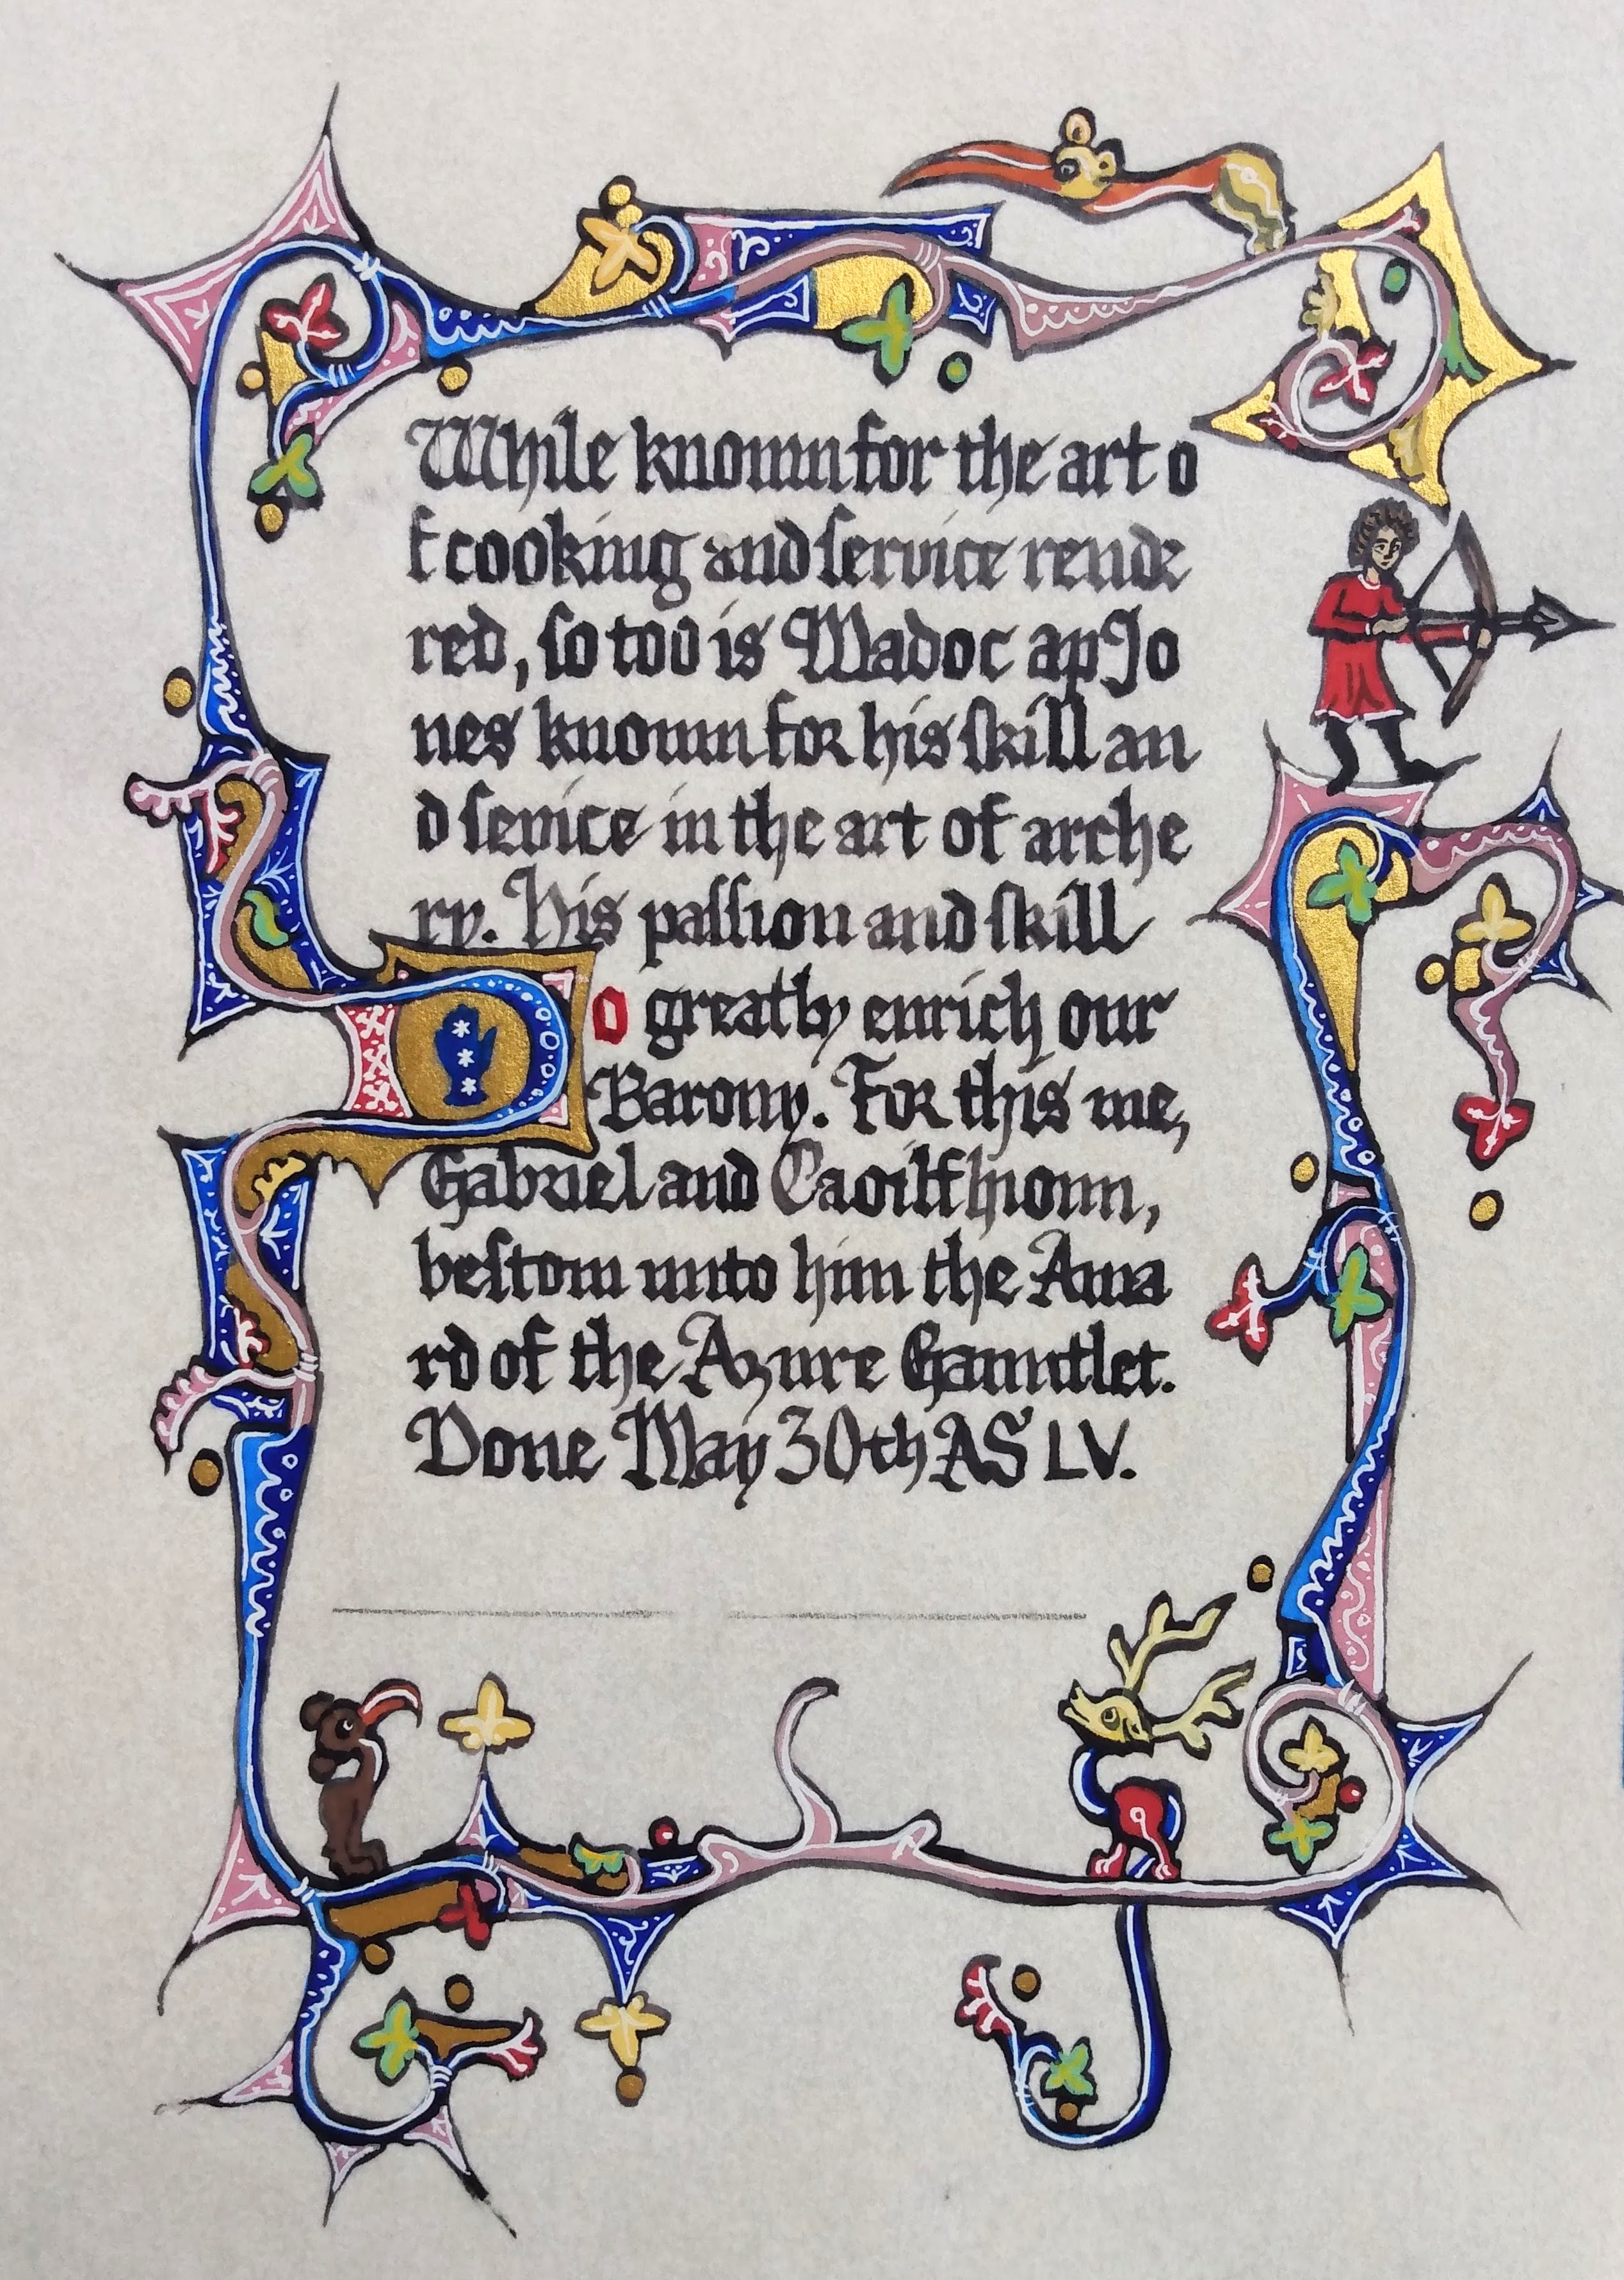 While known for the art o
f cooking and service rende
red, so too is Madoc ap Jo
nes known for his skill an
d sevice in the art of arche
ry. His passion and skill
Do greatly enrich our
Barony. For this we,
Gabriel and Caoilfhionn,
bestow unto him the Awa
rd of the Azure Gauntlet.
Done May 30th AS LV.